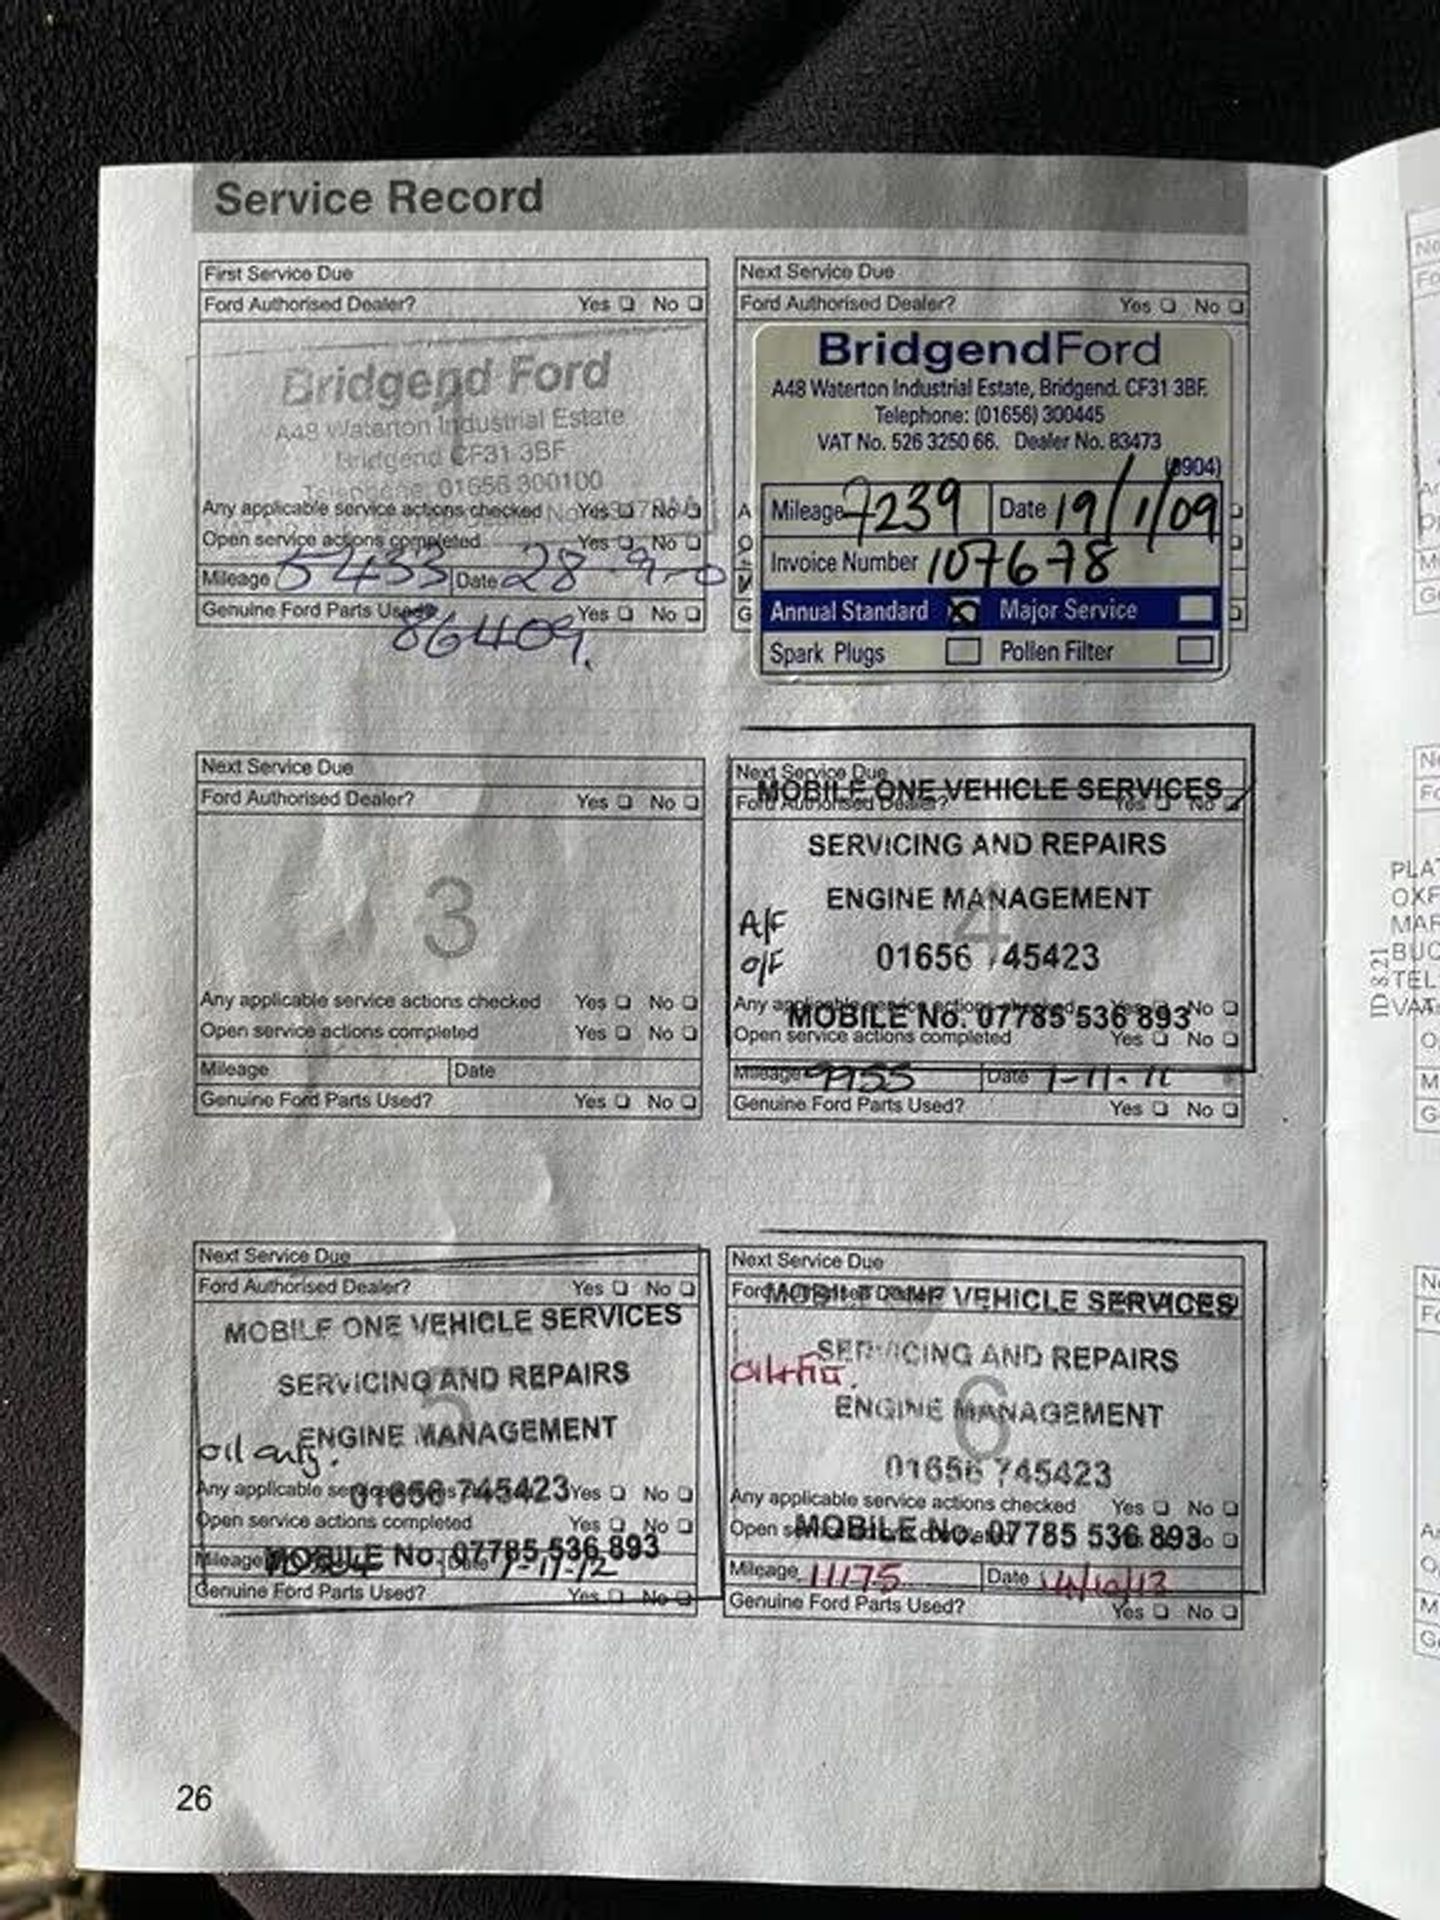 Service Record
First Service Due
Ford Authorised Dealer? Yes No
Bridgend Ford
A48 Waterton Industrial Estate
Bridgend CF31 3BF
Telephone: 01656 300100
1
Any applicable service actions checked Yes No
Open service actions completed Yes No
Mileage 5433 Date 28-9-0
Genuine Ford Parts Used? Yes No
86409.
Next Service Due
Ford Authorised Dealer? Yes No
BridgendFord
A48 Waterton Industrial Estate, Bridgend. CF31 3BF.
Telephone: (01656) 300445
VAT No. 526 3250 66. Dealer No. 83473
Mileage 7239 Date 19/1/09
Invoice Number 107678
Annual Standard Major Service
Spark Plugs Pollen Filter
Next Service Due
Ford Authorised Dealer? Yes No
3
Any applicable service actions checked Yes No
Open service actions completed Yes No
Mileage Date
Genuine Ford Parts Used? Yes No
Next Service Due
MOBILE ONE VEHICLE SERVICES
Ford Authorised Dealer? Yes No
SERVICING AND REPAIRS
ENGINE MANAGEMENT
4
A/F
O/F
01656 745423
Any applicable service actions checked Yes No
MOBILE No. 07785 536 893
Open service actions completed Yes No
Mileage 9955 Date 1-11-11
Genuine Ford Parts Used? Yes No
Next Service Due
Ford Authorised Dealer? Yes No
MOBILE ONE VEHICLE SERVICES
SERVICING AND REPAIRS
5
ENGINE MANAGEMENT
oil only.
01656 745423
Any applicable service actions checked Yes No
Open service actions completed Yes No
MOBILE No. 07785 536 893
Mileage Date 1-11-12
Genuine Ford Parts Used? Yes No
Next Service Due
Ford Authorised Dealer?
MOBILE ONE VEHICLE SERVICES
SERVICING AND REPAIRS
ENGINE MANAGEMENT
6
01656 745423
Any applicable service actions checked Yes No
Open service actions completed No
MOBILE No. 07785 536 893
Mileage 11175 Date 14/10/13
Genuine Ford Parts Used? Yes No
26
PLAT
OXF
MAR
BUC
TEL
VAT